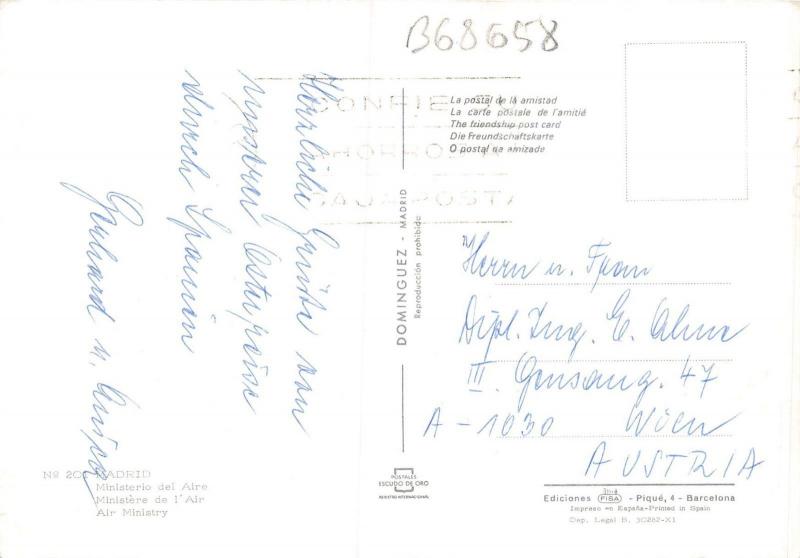 B68658
Herzliche Grüße von
unserer Osterreise
durch Spanien
Gerhard u.
CONFIE
AHORROS
CAJA POSTA
La postal de la amistad
La carte postale de l'amitié
The friendship post card
Die Freundschaftskarte
O postal na amizade
DOMINGUEZ - MADRID
Reproducción prohibida
Herrn u. Frau
Dipl. Ing. E.
III. 47
A-1030 Wien
AUSTRIA
Nº 201 MADRID
Ministerio del Aire
Ministère de l'Air
Air Ministry
POSTALES
ESCUDO DE ORO
REGISTRO INTERNACIONAL
Ediciones FISA - Piqué, 4 - Barcelona
Impreso en España-Printed in Spain
Dep. Legal B. 30282-XI